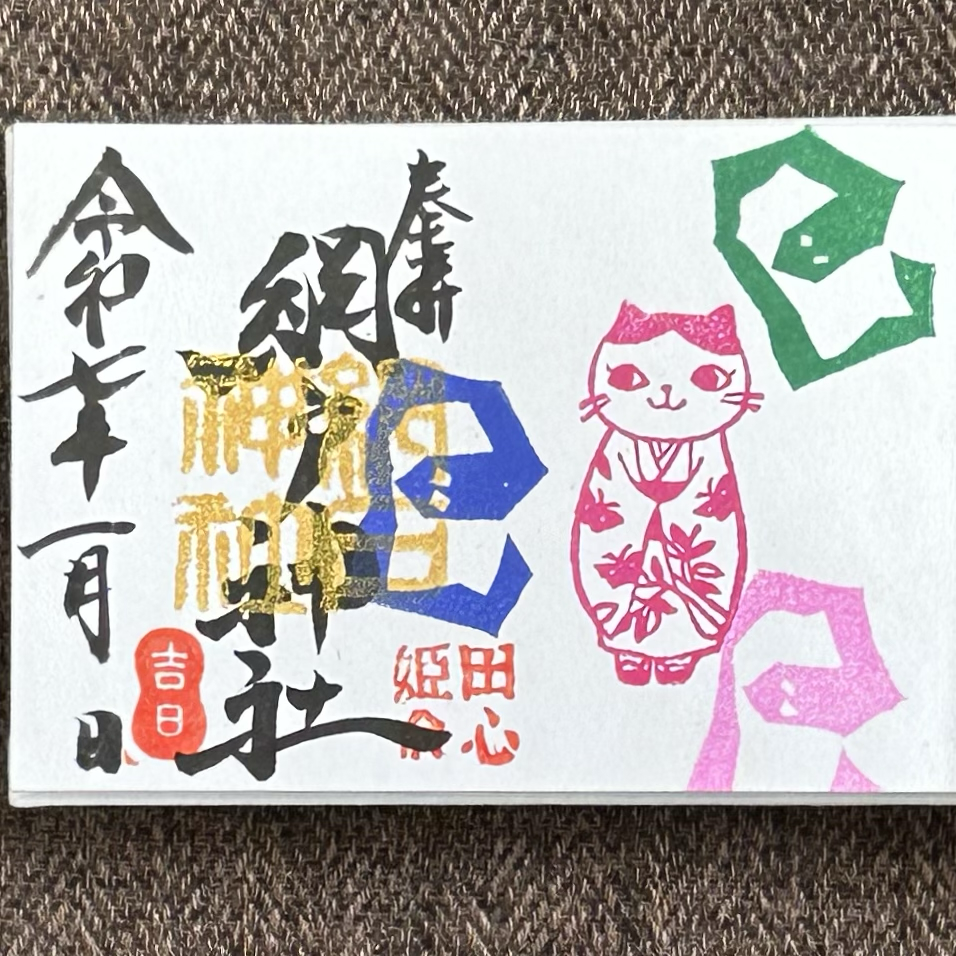 奉拝
網戸神社
網戸
神社
田心
姫命
令和七年一月
吉日
日